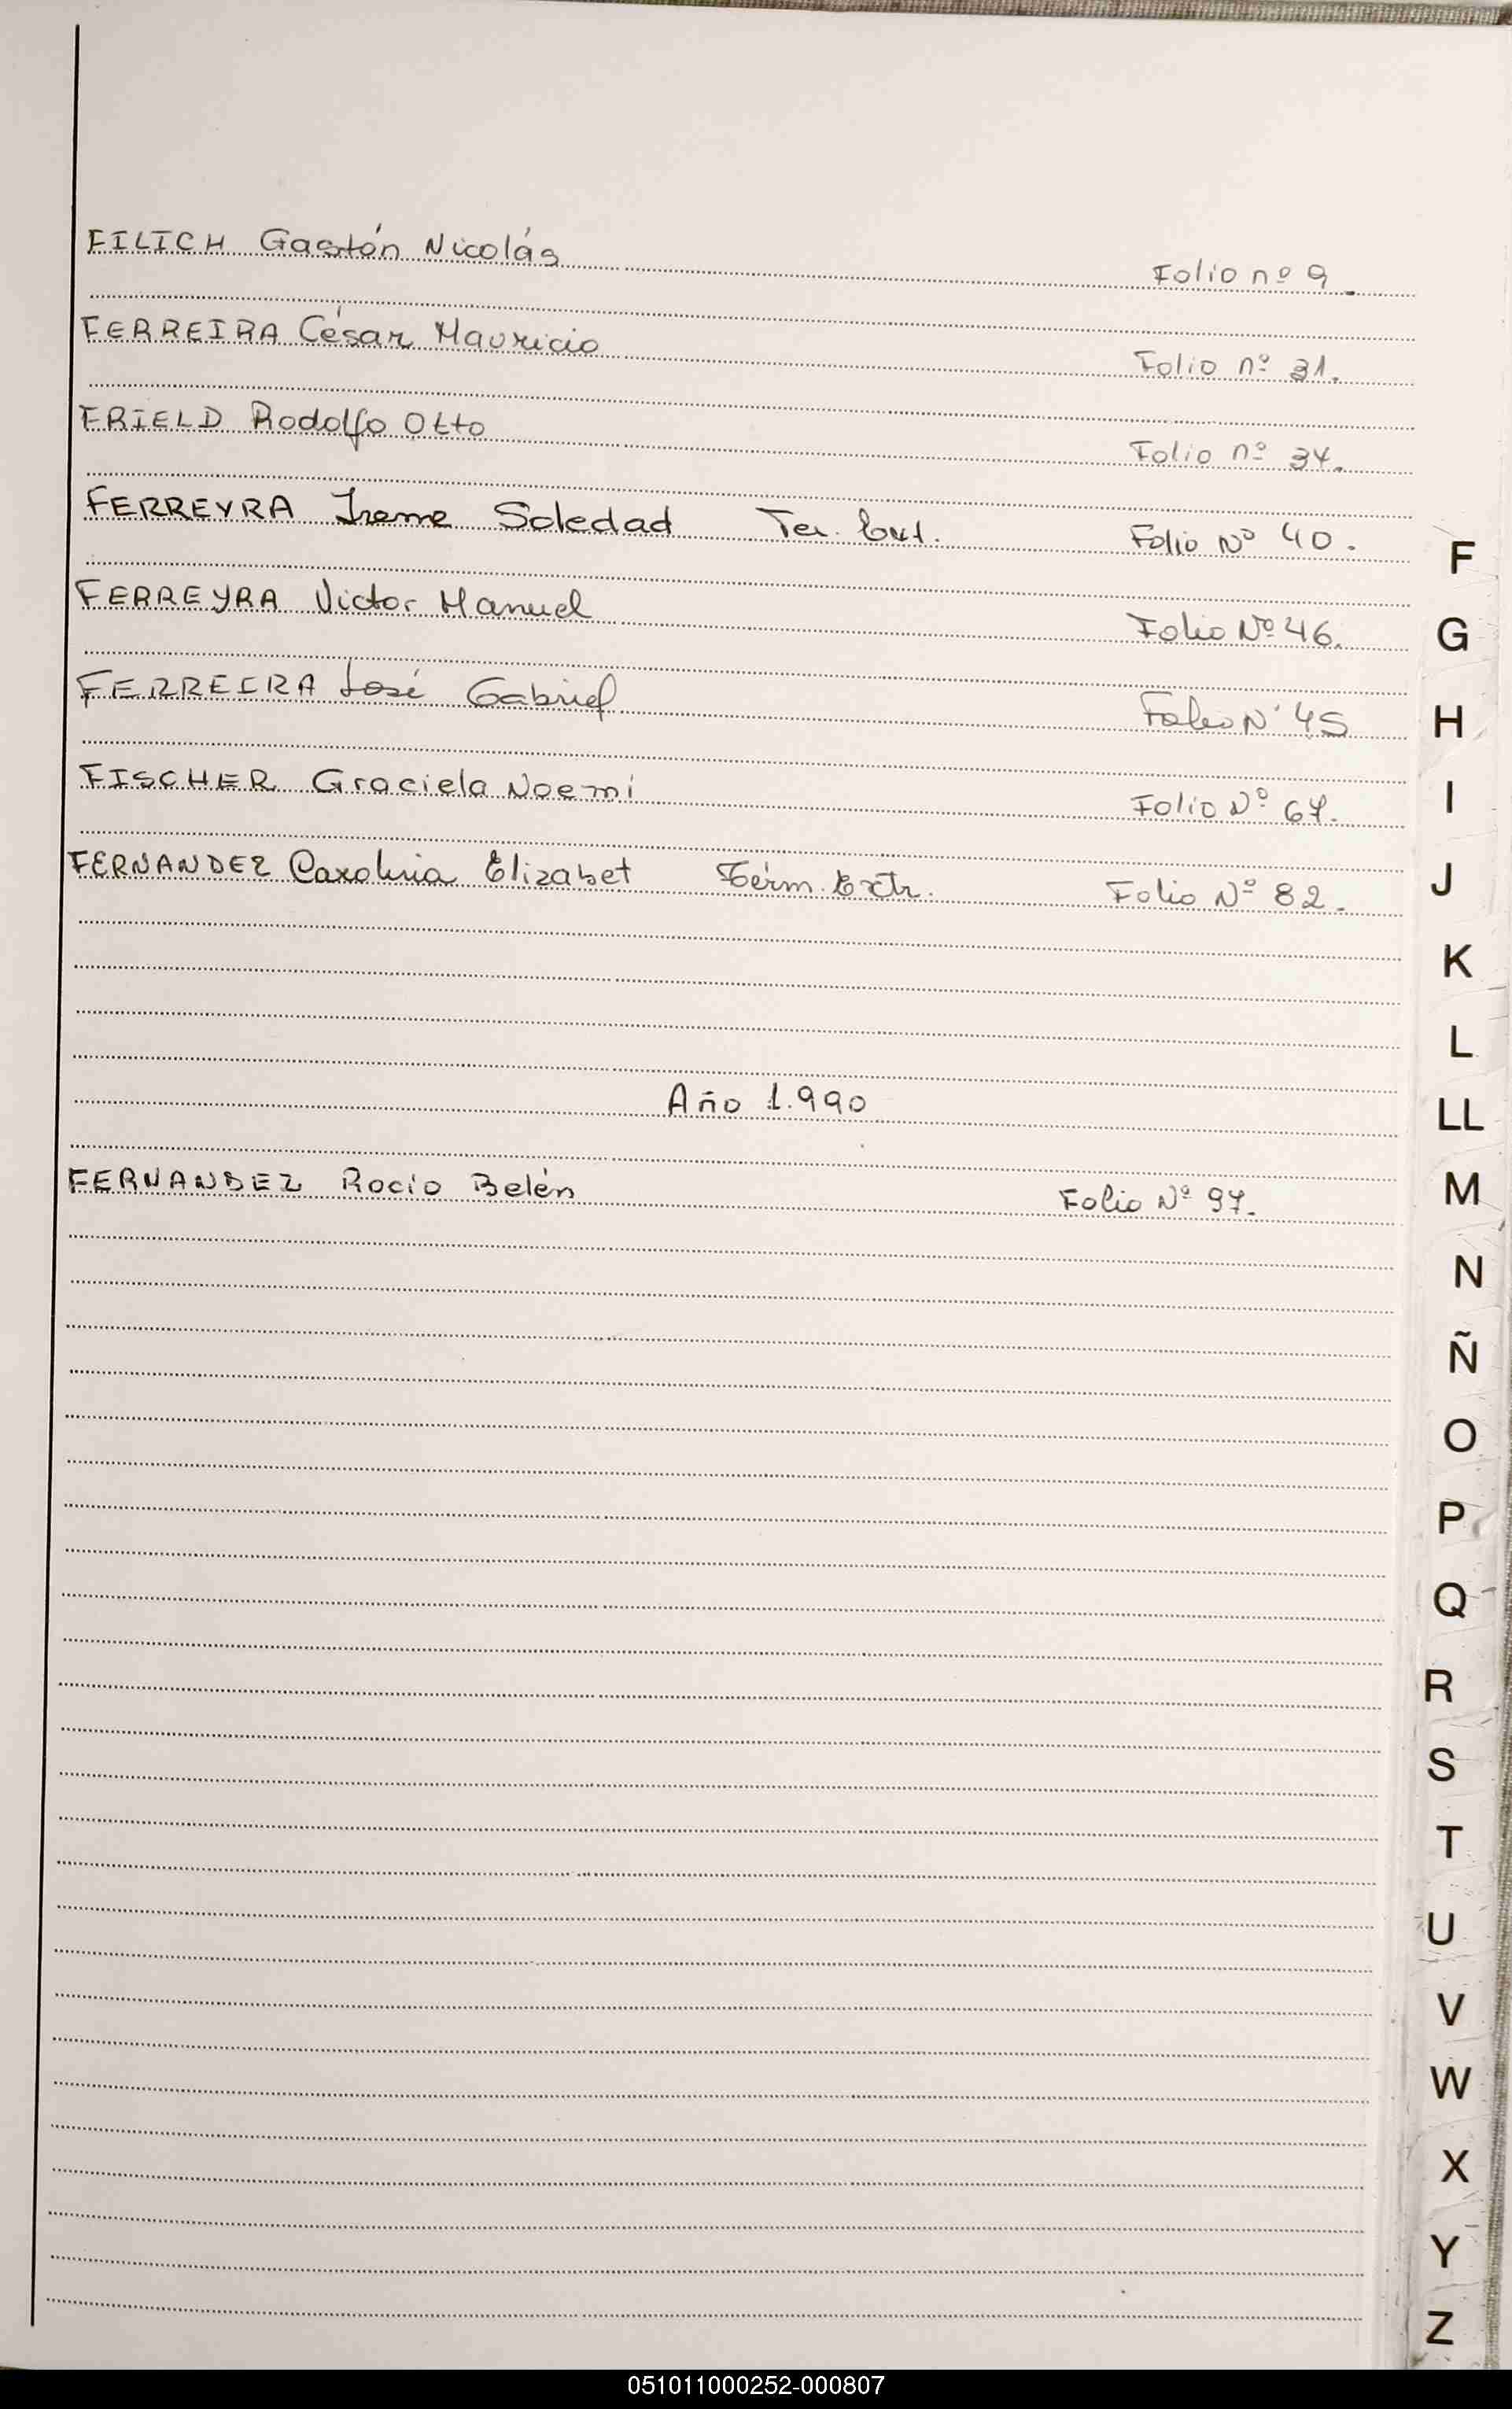 FILICH Gastón Nicolás Folio nº 9.
FERREIRA César Mauricio Folio nº 31.
FRIELD Rodolfo Otto Folio nº 34.
FERREYRA Irene Soledad Ter. Ext. Folio Nº 40.
FERREYRA Victor Manuel Folio Nº 46.
FERREIRA José Gabriel Folio Nº 45
FISCHER Graciela Noemí Folio Nº 67.
FERNANDEZ Carolina Elizabet Térm. Extr. Folio Nº 82.
Año 1.990
FERNANDEZ Rocío Belén Folio Nº 97.
F
G
H
I
J
K
L
LL
M
N
Ñ
O
P
Q
R
S
T
U
V
W
X
Y
Z
051011000252-000807